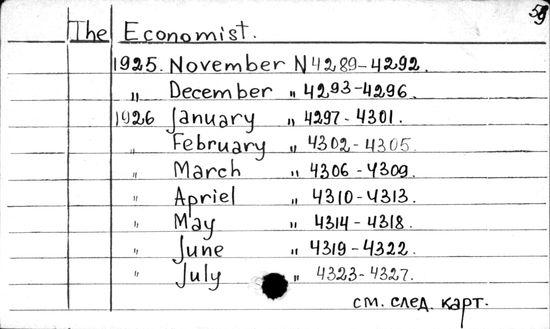 59
The Economist.
1925. November N 4289-4292.
„ December „ 4293-4296.
1926 January „ 4297-4301.
„ February „ 4302-4305.
„ March „ 4306-4309.
„ Apriel „ 4310-4313.
„ May „ 4314-4318.
„ June „ 4319-4322.
„ July „ 4323-4327.
см. след. карт.